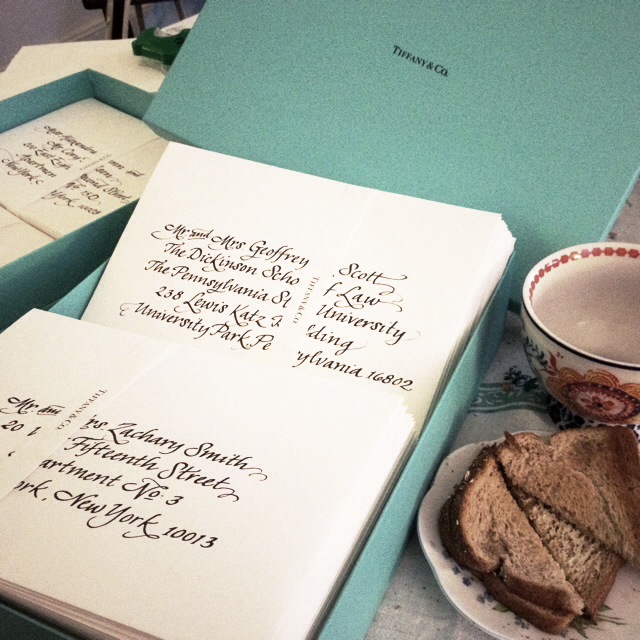 TIFFANY & CO.
Mr. and Mrs Geoffrey Scott
The Dickinson Scho f Law
The Pennsylvania St University
238 Lewis Katz lding
University Park Pe ylvania 16802
TIFFANY & CO.
Mr. and rs Zachary Smith
20 Fifteenth Street
artment No. 3
rk, New York 10013
TIFFANY & CO.